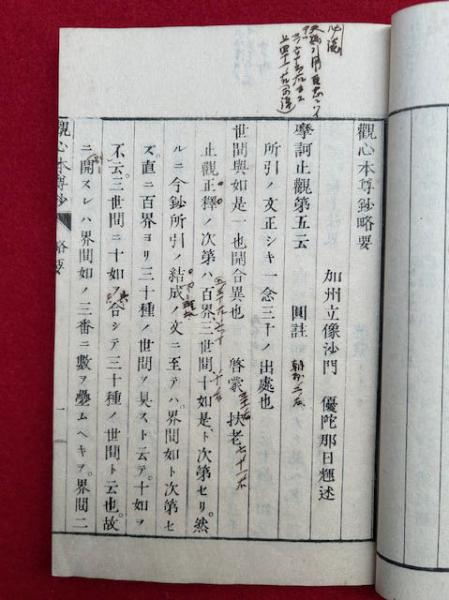 觀心本尊鈔略要
加州立像沙門　優陀那日輝述
摩訶止觀第五云　　圓註
所引ノ文正シキ一念三千ノ出處也
世間與如是一也開合異也　啓蒙　扶老
止觀正釋ノ次第ハ百界三世間十如是ト次第セリ。然
ルニ今鈔所引ノ結成ノ文ニ至テハ界間如ト次第セ
ズ直ニ百界ヨリ三十種ノ世間ヲ具スト云テ。十如ヲ
不云。三世間ニ十如ヲ合シテ三十種ノ世間ト云也。故
ニ開スレハ界間如ノ三番ニ數ヲ疊ムヘキヲ。界間二
觀心本尊鈔　略要　一